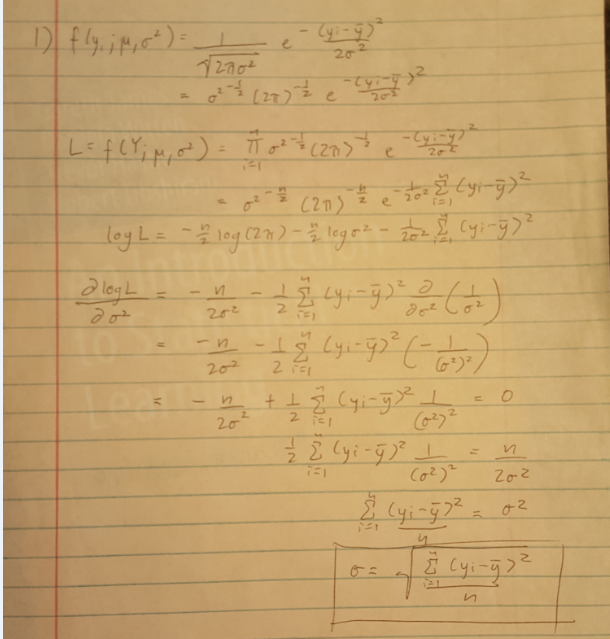 1) f(yᵢ; μ, σ²) = 1/√(2πσ²) e^(-(yi-ȳ)²/2σ²)
= σ²^(-1/2) (2π)^(-1/2) e^(-(yi-ȳ)²/2σ²)
L = f(Y; μ, σ²) = π_{i=1}^{n} σ²^(-1/2) (2π)^(-1/2) e^(-(yi-ȳ)²/2σ²)
= σ²^(-n/2) (2π)^(-n/2) e^(-1/2σ² Σ_{i=1}^{n} (yi-ȳ)²)
log L = -n/2 log(2π) - n/2 log σ² - 1/2σ² Σ_{i=1}^{n} (yi-ȳ)²
∂logL/∂σ² = -n/2σ² - 1/2 Σ_{i=1}^{n} (yi-ȳ)² ∂/∂σ² (1/σ²)
= -n/2σ² - 1/2 Σ_{i=1}^{n} (yi-ȳ)² (-1/(σ²)²)
= -n/2σ² + 1/2 Σ_{i=1}^{n} (yi-ȳ)² 1/(σ²)² = 0
1/2 Σ_{i=1}^{n} (yi-ȳ)² 1/(σ²)² = n/2σ²
Σ_{i=1}^{n} (yi-ȳ)²/n = σ²
σ = √(Σ_{i=1}^{n} (yi-ȳ)²/n)